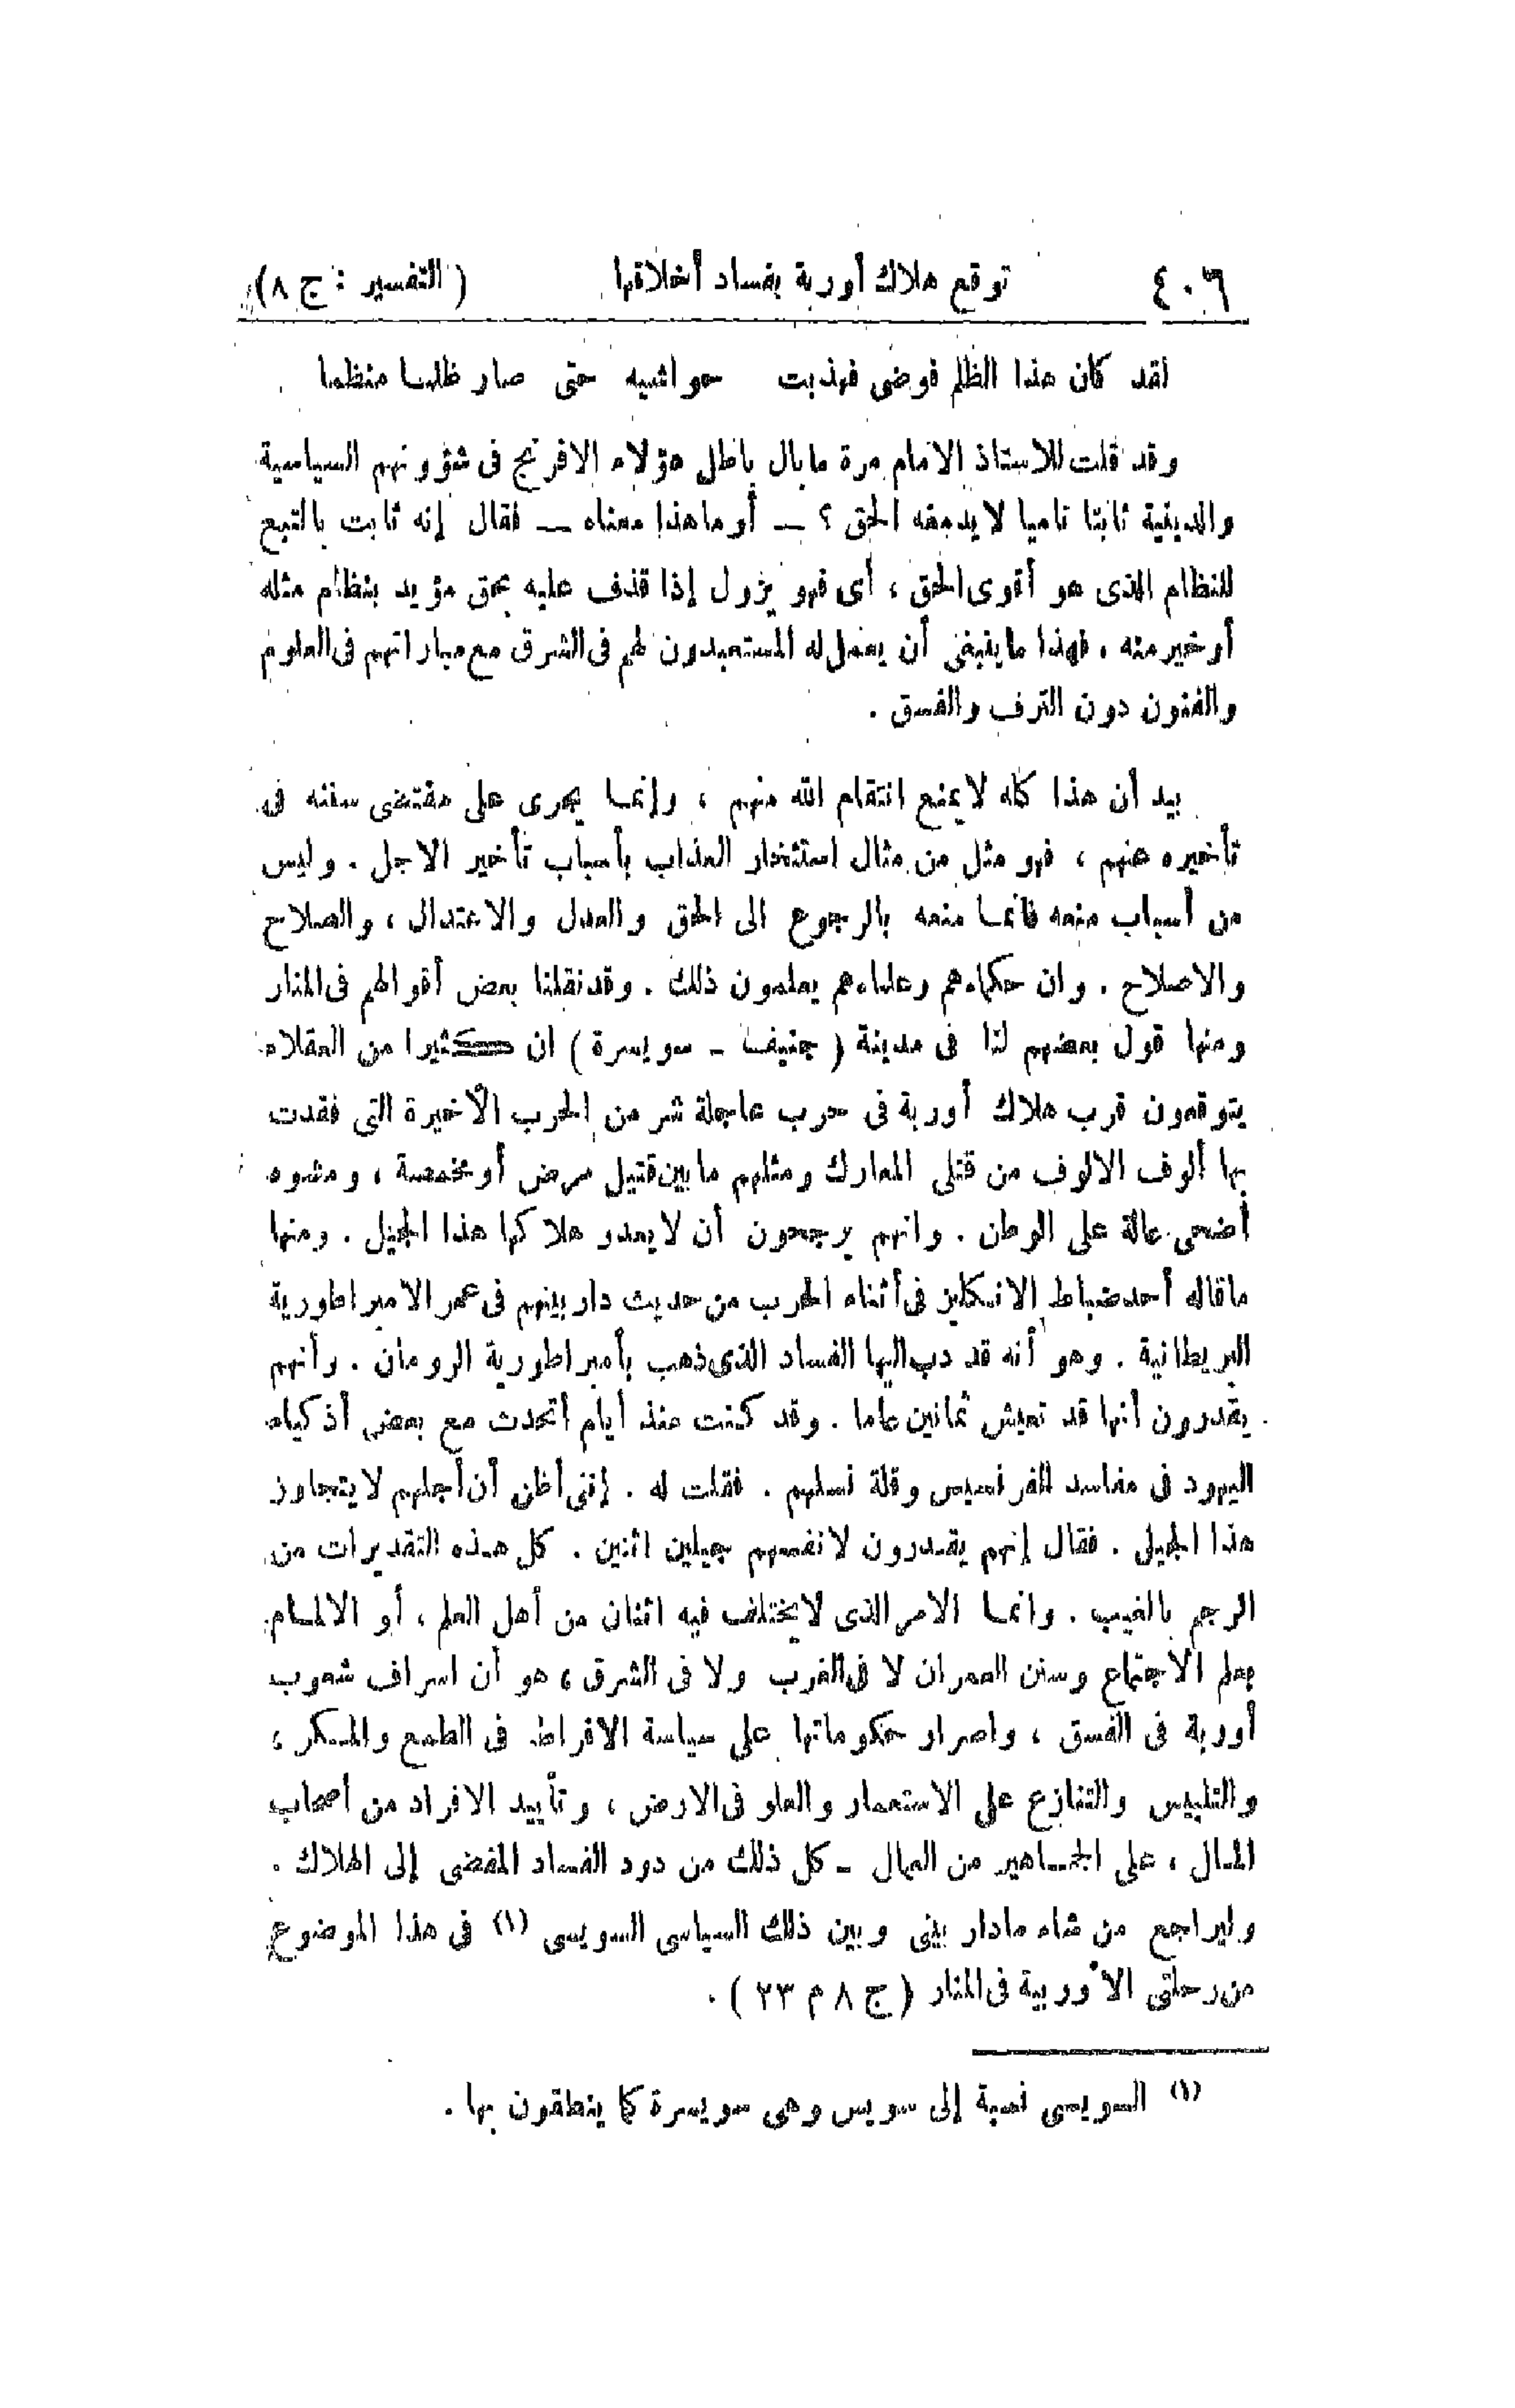 ٤٠٦ توقع هلاك أوربة بفساد أخلاقها (التفسير : ج ٨)
لقد كان هذا الظلم فوضى فهذبت حواشيه حتى صار ظلما منظما
وقد قلت للاستاذ الامام مرة ما بال باطل هؤلاء الافرنج فى شؤونهم السياسية
والدينية ثابتا ناميا لا يدمغه الحق ؟ ــ أو ما هذا معناه ــ فقال إنه ثابت بالتبع
للنظام الذى هو أقوى الحق ، أى فهو يزول إذا قذف عليه بحق مؤيد بنظام مثله
أو خير منه . فهذا ما ينبغى أن يعمل له المستعبدون لهم فى الشرق مع مباراتهم فى العلوم
والفنون دون الترف والفسق .
بيد أن هذا كله لا يمنع انتقام الله منهم ، وإنما يجرى على مقتضى سننه فى
تأخيره عنهم ، فهو مثل من مثال استئخار العذاب بأسباب تأخير الاجل . وليس
من أسباب منعه فانما منعه بالرجوع الى الحق والعدل والاعتدال ، والصلاح
والاصلاح . وان حكماءهم وعلماءهم يعلمون ذلك . وقد نقلنا بعض أقوالهم فى المنار
ومنها قول بعضهم لنا فى مدينة ( جنيف - سويسرة ) ان كثيرا من العقلاء
يتوقعون قرب هلاك أوربة فى حرب عاجلة شر من الحرب الأخيرة التى فقدت
بها ألوف الالوف من قتلى المعارك ومثلهم ما بين قتيل مرض أو مخمصة ، ومشوه
أضحى عالة على الوطن . وانهم يرجحون أن لا يعدو هلاكها هذا الجيل . ومنها
ما قاله أحد ضباط الانكليز فى أثناء الحرب من حديث دار بينهم فى عمر الامبراطورية
البريطانية . وهو أنه قد دب اليها الفساد الذى ذهب بأمبراطورية الرومان . وأنهم
يقدرون أنها قد تعيش ثمانين عاما . وقد كنت منذ أيام أتحدث مع بعض أذكياء
اليهود فى مفاسد الفرنسيس وقلة نسلهم . فقلت له . إننى أظن أن أجلهم لا يتجاوز
هذا الجيل . فقال إنهم يقدرون لانفسهم جيلين اثنين . كل هذه التقديرات من
الرجم بالغيب . وانما الامر الذى لا يختلف فيه اثنان من أهل العلم ، أو الالمام
بعلم الاجتماع وسنن العمران لا فى الغرب ولا فى الشرق ، هو أن اسراف شعوب
أوربة فى الفسق ، واصرار حكوماتها على سياسة الافراط فى الطمع والمكر ،
والتلبيس والتنازع على الاستعمار والعلو فى الارض ، وتأييد الافراد من أصحاب
المال ، على الجماهير من العمال - كل ذلك من دود الفساد المفضى إلى الهلاك .
وليراجع من شاء ما دار بينى وبين ذلك السياسى السويسى (١) فى هذا الموضوع
من رحلتى الأوربية فى المنار ( ج ٨ م ٢٣ ) .
(١) السويسى نسبة إلى سويس وهى سويسرة كما ينطقون بها .